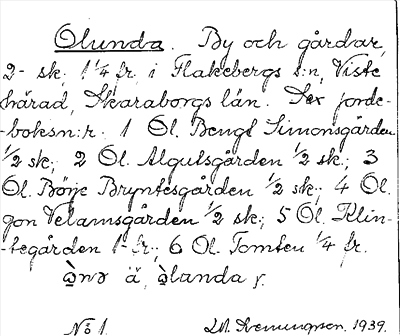 Olunda. By och gårdar,
2- sk, 1 1/4 fr, i Flakebergs s:n, Viste
härad, Skaraborgs län. Sex jorde-
-boksn:r. 1 Ol. Bengt Simonsgården
1/2 sk; 2 Ol. Algutsgården 1/2 sk; 3
Ol. Börje Bryntesgården 1/2 sk; 4 Ol.
Jon Velamsgården 1/2 sk; 5 Ol. Klin-
-tegården 1- fr; 6 Ol. Tomten 1/4 fr.
No 1.
1939.